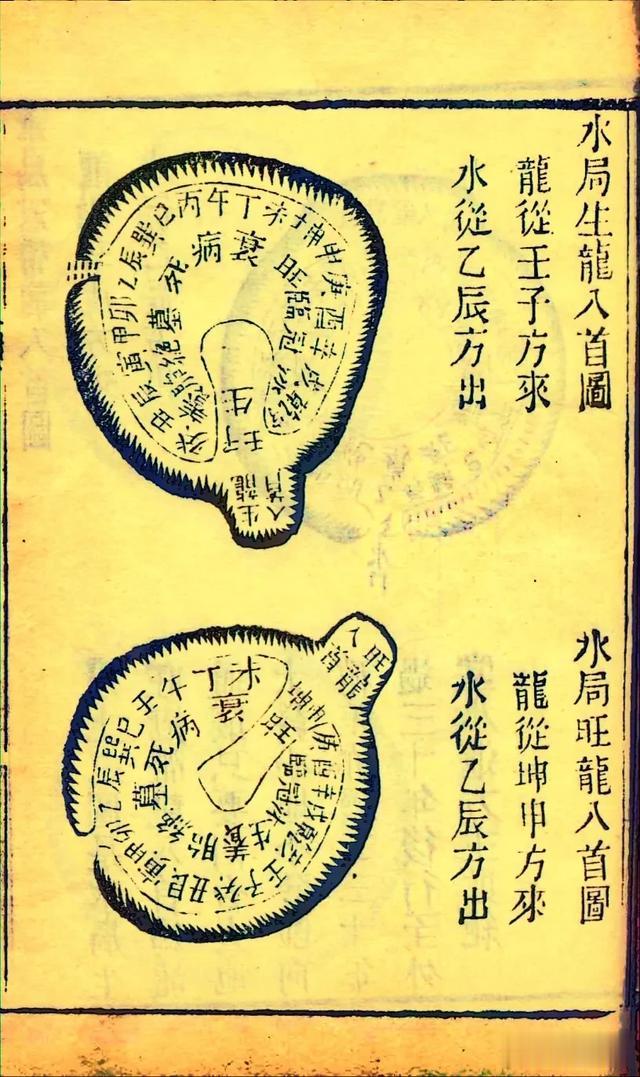 水局生龍入首圖
龍從壬子方來
水從乙辰方出
丑艮寅甲卯乙辰巽巳丙午丁未坤申庚酉辛戌乾亥
壬子癸
養胎絕墓死病衰旺臨冠沐生
生龍入首
水局旺龍入首圖
龍從坤申方來
水從乙辰方出
甲卯乙辰巽巳壬午丁未坤申庚酉辛戌乾亥壬子癸丑艮寅
衰病死墓絕胎養生沐冠臨旺
旺龍入首